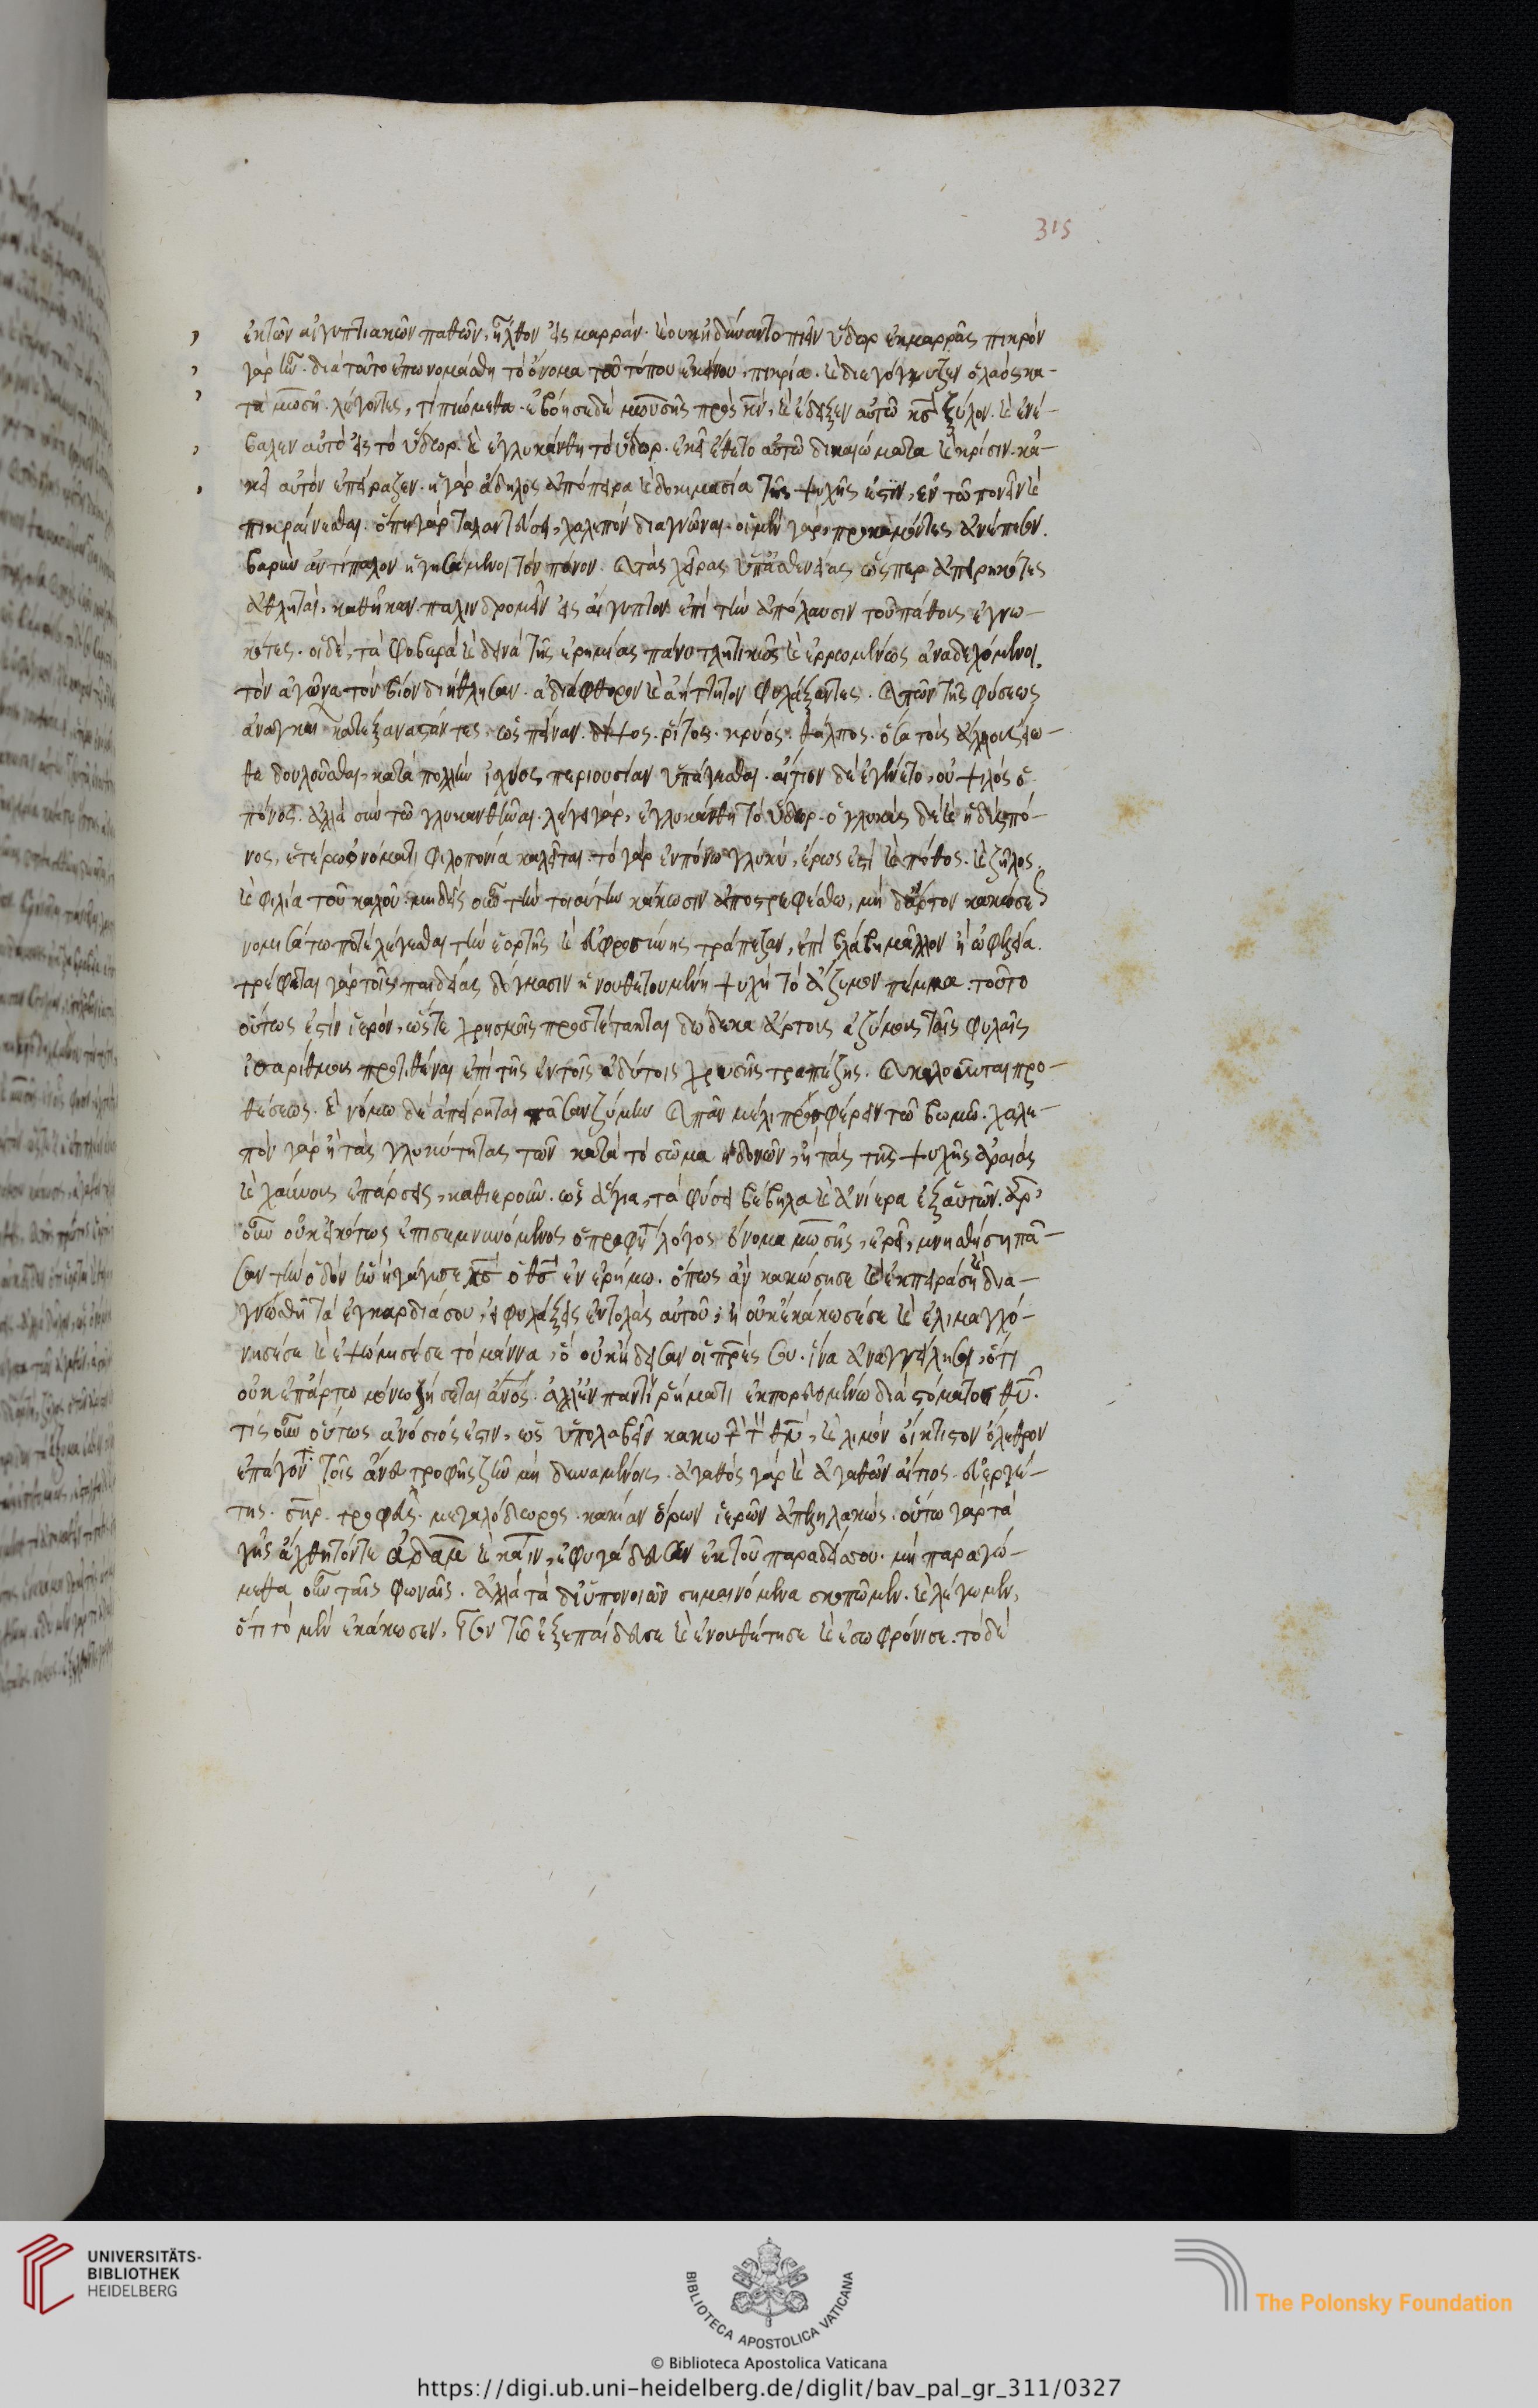 315
ἐκ τῶν αἰγυπτιακῶν παθῶν, ἦλθον εἰς μαρράν. καὶ οὐκ ἠδύναντο πιεῖν ὕδωρ ἐκ μαρρᾶς πικρόν
γάρ ἦν. διὰ τοῦτο ἐπωνομάσθη τὸ ὄνομα τοῦ τόπου ἐκείνου, πικρία. καὶ διεγόγγυζεν ὁ λαὸς κα-
τὰ μωσῆ. λέγοντες, τί πιώμεθα. ἐβόησε δὲ μωυσῆς πρὸς κν, καὶ ἔδειξεν αὐτῶ κς ξύλον. καὶ ἐνέ-
βαλεν αὐτὸ εἰς τὸ ὕδωρ. καὶ ἐγλυκάνθη τὸ ὕδωρ. ἐκεῖ ἔθετο αὐτῶ δικαιώματα καὶ κρίσιν. κἀ-
κεῖ αὐτὸν ἐπείραζεν. ἡ γὰρ ἄδηλος ἀπόπειρα καὶ δοκιμασία τῆς ψυχῆς ἐστϊν, ἐν τῶ πονεῖν καὶ
πικραίνεσθαι. ὅπη γὰρ ταλαντεύσει, χαλεπὸν διαγνῶναι. οἱ μὲν γὰρ, προκαμόντες ἀνέπεσον.
βαρὺν ἀντίπαλον ἡγησάμενοι τὸν πόνον. καὶ τὰς χεῖρας ὑπ' ἀσθενείας ὥσπερ ἀπειρηκότες
ἀθληταὶ, καθῆκαν. παλινδρομεῖν εἰς αἴγυπτον ἐπὶ τὴν ἀπόλαυσιν τοῦ πάθους ἐγνω-
κότες. οἱ δὲ, τὰ φοβερὰ καὶ δεινὰ τῆς ἐρημίας πάνυ τλητικῶς καὶ ἐρρωμένως ἀναδεχόμενοι,
τὸν ἀγῶνα τὸν βίον διήθλησαν. ἀδιάφθορον καὶ ἀήττητον φυλάξαντες. καὶ τῶν τῆς φύσεως
ἀναγκαίων κατεξαναστάντες. ὡς πεῖναν. δίψος. ῥῖγος. κρύος. θάλπος. ὅσα τοὺς ἄλλους εἴω-
θε δουλοῦσθαι, κατὰ πολλὴν ἰσχύος περιουσίαν ὑπάγεσθαι. αἴτιον δὲ ἐγένετο, οὐ ψιλὸς ὁ
πόνος. ἀλλὰ σὺν τῶ γλυκανθῆναι. λέγει γὰρ, ἐγλυκάνθη τὸ ὕδωρ. ὁ γλυκὺς δὲ καὶ ἡδὺς πό-
νος, ἑτέρω ὀνόματι φιλοπονία καλεῖται. τὸ γὰρ ἐν πόνω γλυκύ, ἔρως ἐστὶ καὶ πόθος. καὶ ζῆλος,
καὶ φιλία τοῦ καλοῦ. μηδεὶς οὖν τὴν τοιαύτην κάκωσιν ἀποστρεφέσθω, μὴ δ' ἄρτον κακώσεως
νομισάτω ποτὲ λέγεσθαι τὴν ἑορτῆς καὶ εὐφροσύνης τράπεζαν, ἐπὶ βλάβη μᾶλλον ἢ ὠφελεία.
τρέφεται γὰρ τοῖς παιδείας δόγμασιν ἡ νουθετουμένη ψυχή τὸ ἄζυμον πέμμα. τοῦτο
οὕτως ἐστὶν ἱερόν, ὥστε χρησμοῖς προστέτακται δώδεκα ἄρτους ἀζύμους ταῖς φυλαῖς
ἰσαρίθμους προτιθέναι ἐπὶ τῆς ἐν τοῖς ἀδύτοις χρυσῆς τραπέζης. καὶ καλοῦνται προ-
θέσεως. καὶ νόμω δὲ ἀπείρηται πᾶσαν ζύμην καὶ πᾶν μέλι προσφέρειν τῶ βωμῶ. χαλε-
πὸν γὰρ ἢ τὰς γλυκύτητας τῶν κατὰ τὸ σῶμα ἡδονῶν, ἢ τὰς τῆς ψυχῆς ἀραιὰς
καὶ χαύνους ἐπάρσεις, καθιεροῦν. ὡς ἅγια, τὰ φύσει βέβηλα καὶ ἀνίερα ἐξ ἑαυτῶν. ἆρ'
οὖν οὐκ εἰκότως ἐπισεμνυνόμενος ὁ προφήτης λόγος ὄνομα μωσῆς, ἐρεῖ, μνησθήση πᾶ-
σαν τὴν ὁδὸν ἣν ἤγαγέ σε κς ὁ θς ἐν ἐρήμω. ὅπως ἂν κακώση σε καὶ ἐκπειράση καὶ δια-
γνωσθῆ τὰ ἐν καρδία σου, εἰ φυλάξεις ἐντολὰς αὐτοῦ, ἢ οὔ. ἐκάκωσέ σε καὶ ἐλιμαγχό-
νησέ σε καὶ ἐψώμισέ σε τὸ μάννα, ὃ οὐκ ᾔδεισαν οἱ πρες σου. ἵνα ἀναγγείλη σοι, ὅτι
οὐκ ἐπ' ἄρτω μόνω ζήσεται ἄνος. ἀλλ' ἐν παντὶ ῥήματι ἐκπορευομένω διὰ στόματος θυ.
τίς οὖν οὕτως ἀνόσιός ἐστιν, ὡς ὑπολαβεῖν κακωτὴν τὸν θν, καὶ λιμὸν οἴκτιστον ὄλεθρον
ἐπάγοντα τοῖς ἄνευ τροφῆς ζῆν μὴ δυναμένοις. ἀγαθὸς γὰρ καὶ ἀγαθῶν αἴτιος. εὐεργέ-
της. σηρ. τροφεὺς. μεγαλόδωρος. κακίαν ὅρων ἱερῶν ἀπεληλακώς. οὕτω γὰρ τὰ
γῆς ἄχθη τόν τε ἀδὰμ καὶ κάϊν, ἐφυγάδευσεν ἐκ τοῦ παραδείσου. μὴ παραγώ-
μεθα οὖν ταῖς φωναῖς. ἀλλὰ τὰ δι' ὑπονοιῶν σημαινόμενα σκοπῶμεν. καὶ λέγωμεν,
ὅτι τὸ μὲν ἐκάκωσεν, ἴσον τῶ ἐξεπαίδευσε καὶ ἐνουθέτησε καὶ ἐσωφρόνισε. τὸ δὲ
UNIVERSITÄTS-
BIBLIOTHEK
HEIDELBERG
BIBLIOTECA APOSTOLICA VATICANA
The Polonsky Foundation
© Biblioteca Apostolica Vaticana
https://digi.ub.uni-heidelberg.de/diglit/bav_pal_gr_311/0327